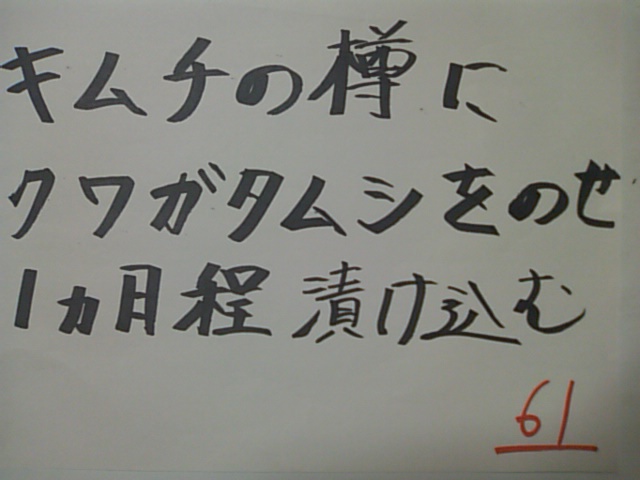 キムチの樽に
クワガタムシをのせ
1ヵ月程漬け込む
61